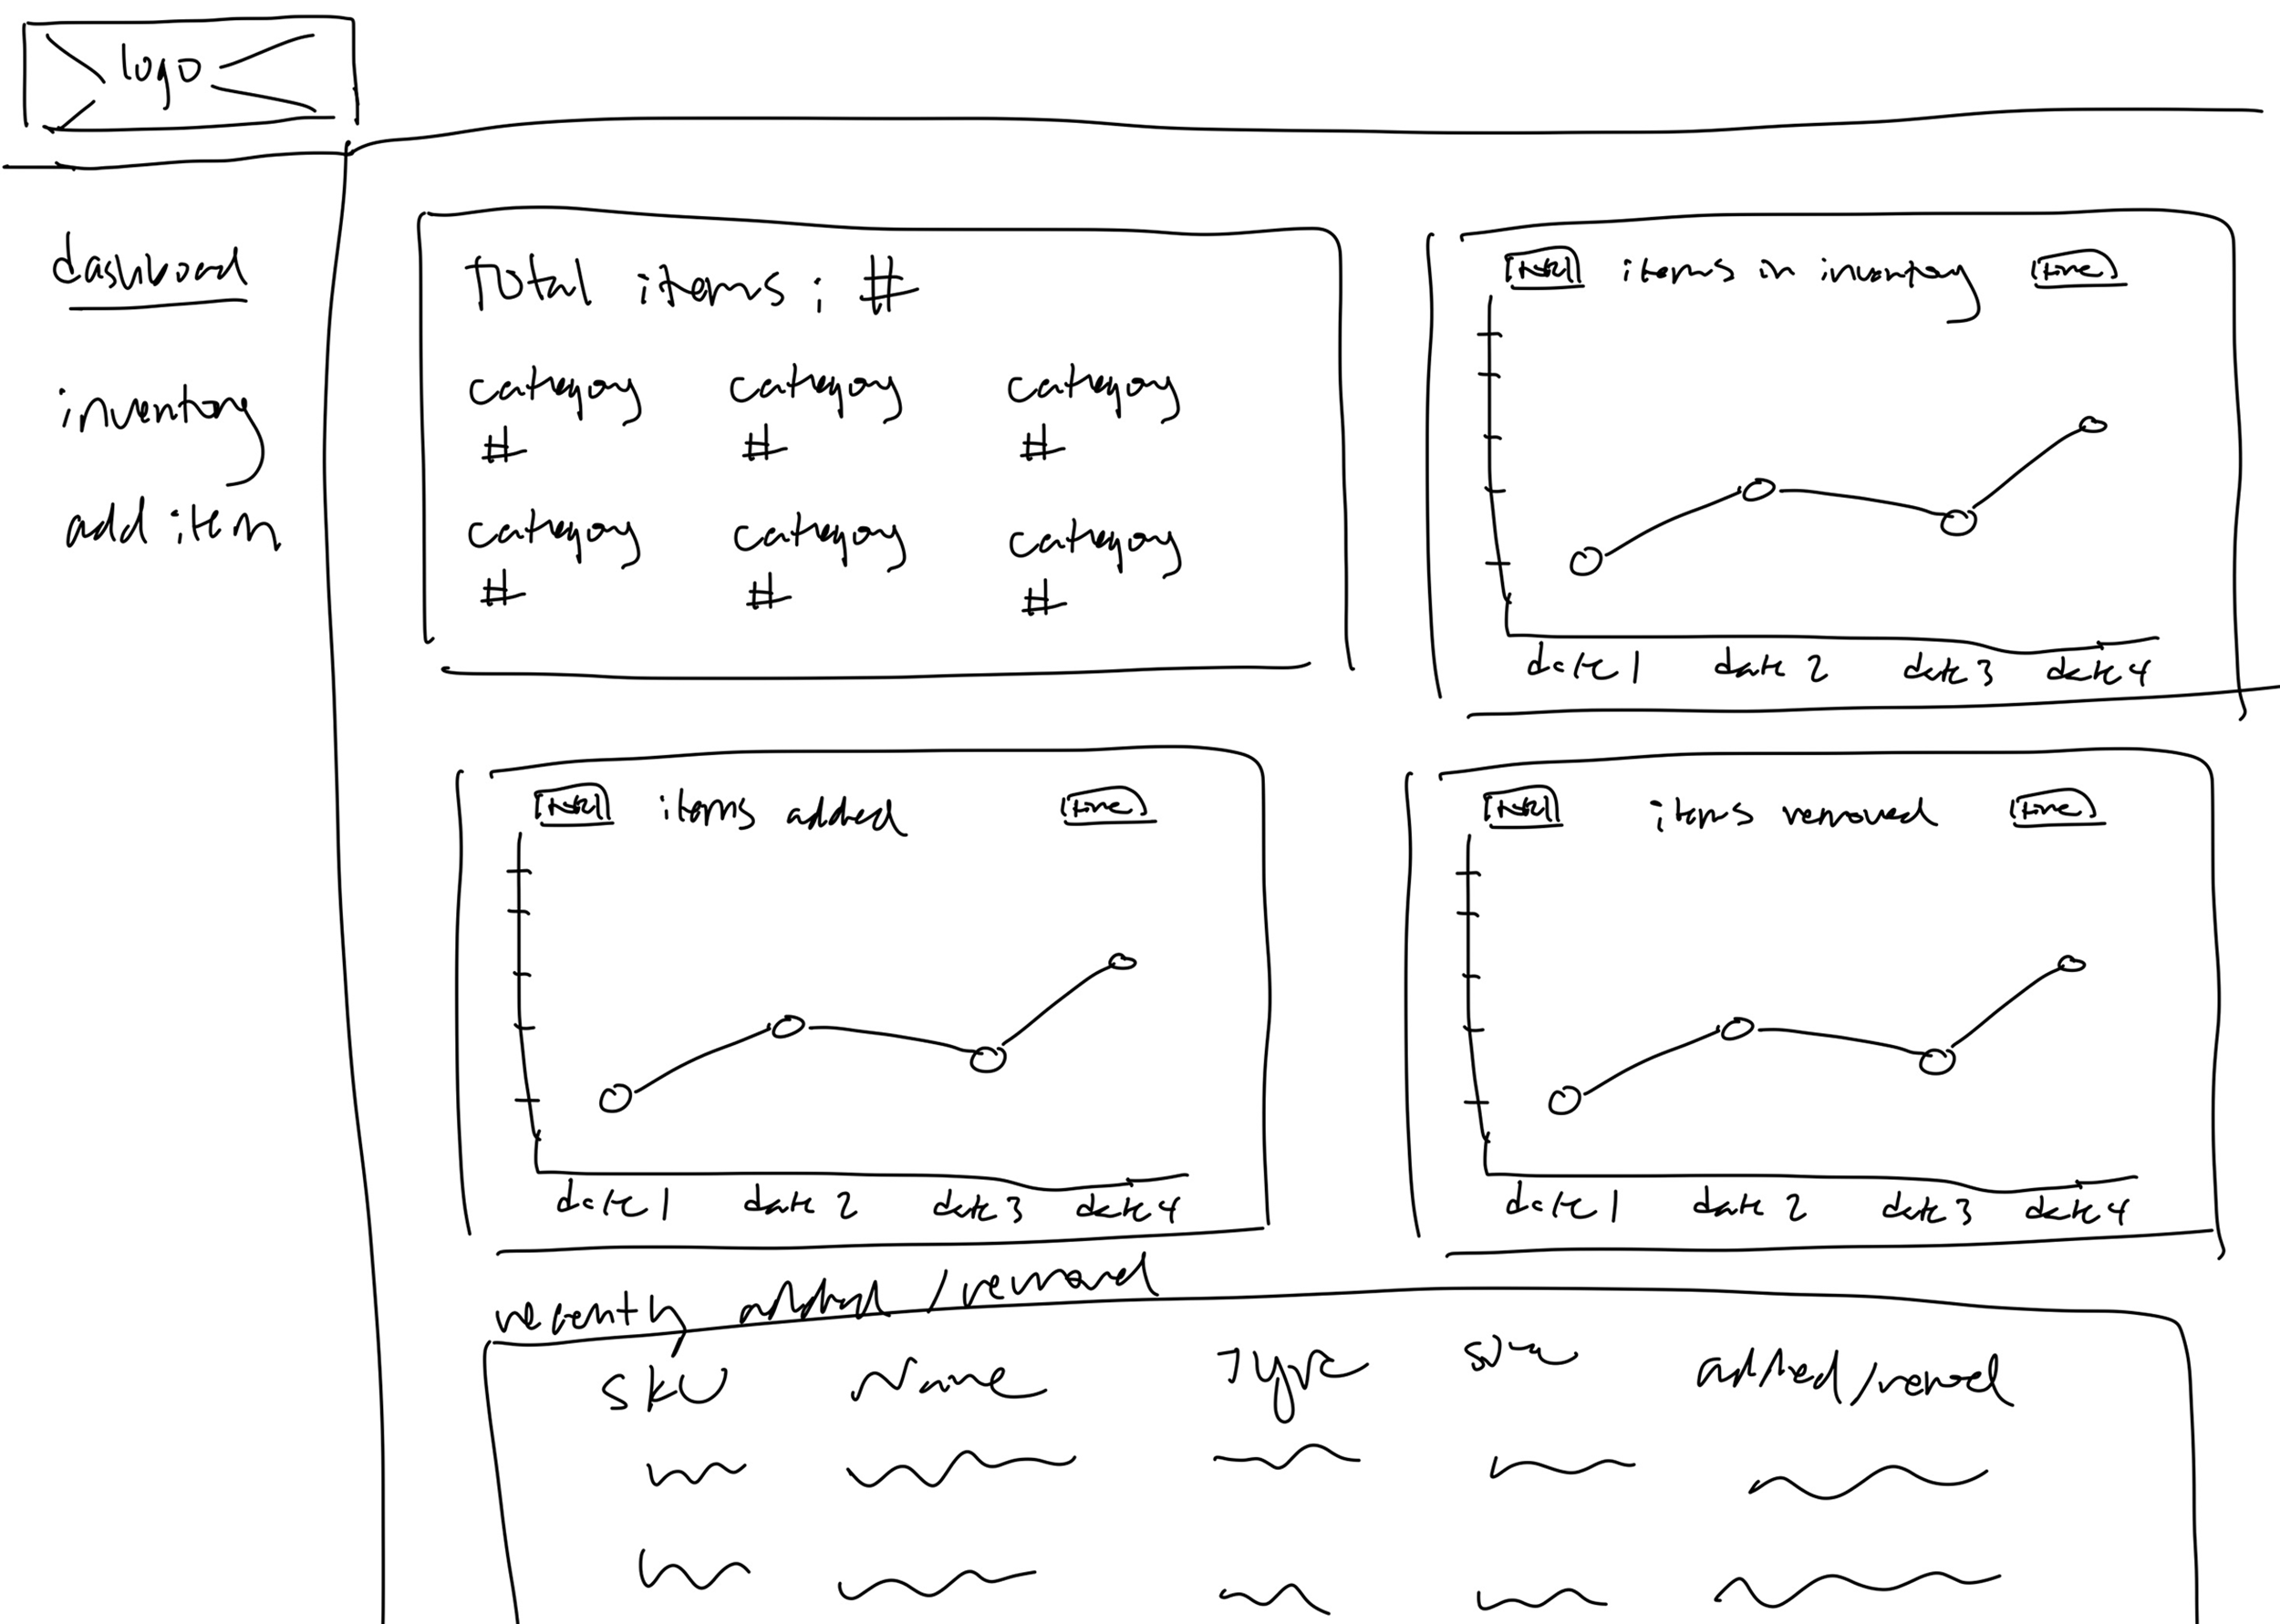 logo
dashboard
inventory
add item
Total items : #
category category category
# # #
category category category
# # #
total items in inventory time
date 1 date 2 date 3 date 4
total items added time
date 1 date 2 date 3 date 4
total items removed time
date 1 date 2 date 3 date 4
recently added / removed
SKU Name Type added/removed